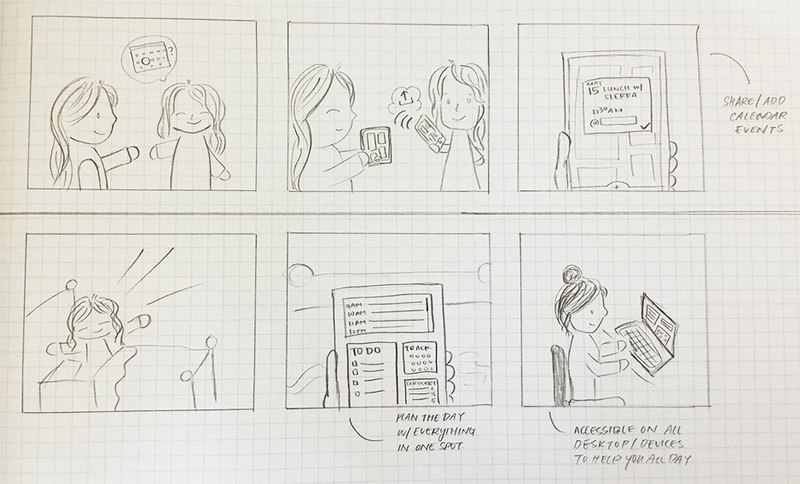 ?
MAY
15 LUNCH W/
SIERRA
11:30AM
@
SHARE/ADD
CALENDAR
EVENTS
9AM
10AM
11AM
12PM
TO DO
TRACK
GROCERY
PLAN THE DAY
W/ EVERYTHING
IN ONE SPOT
ACCESSIBLE ON ALL
DESKTOP/DEVICES
TO HELP YOU ALL DAY